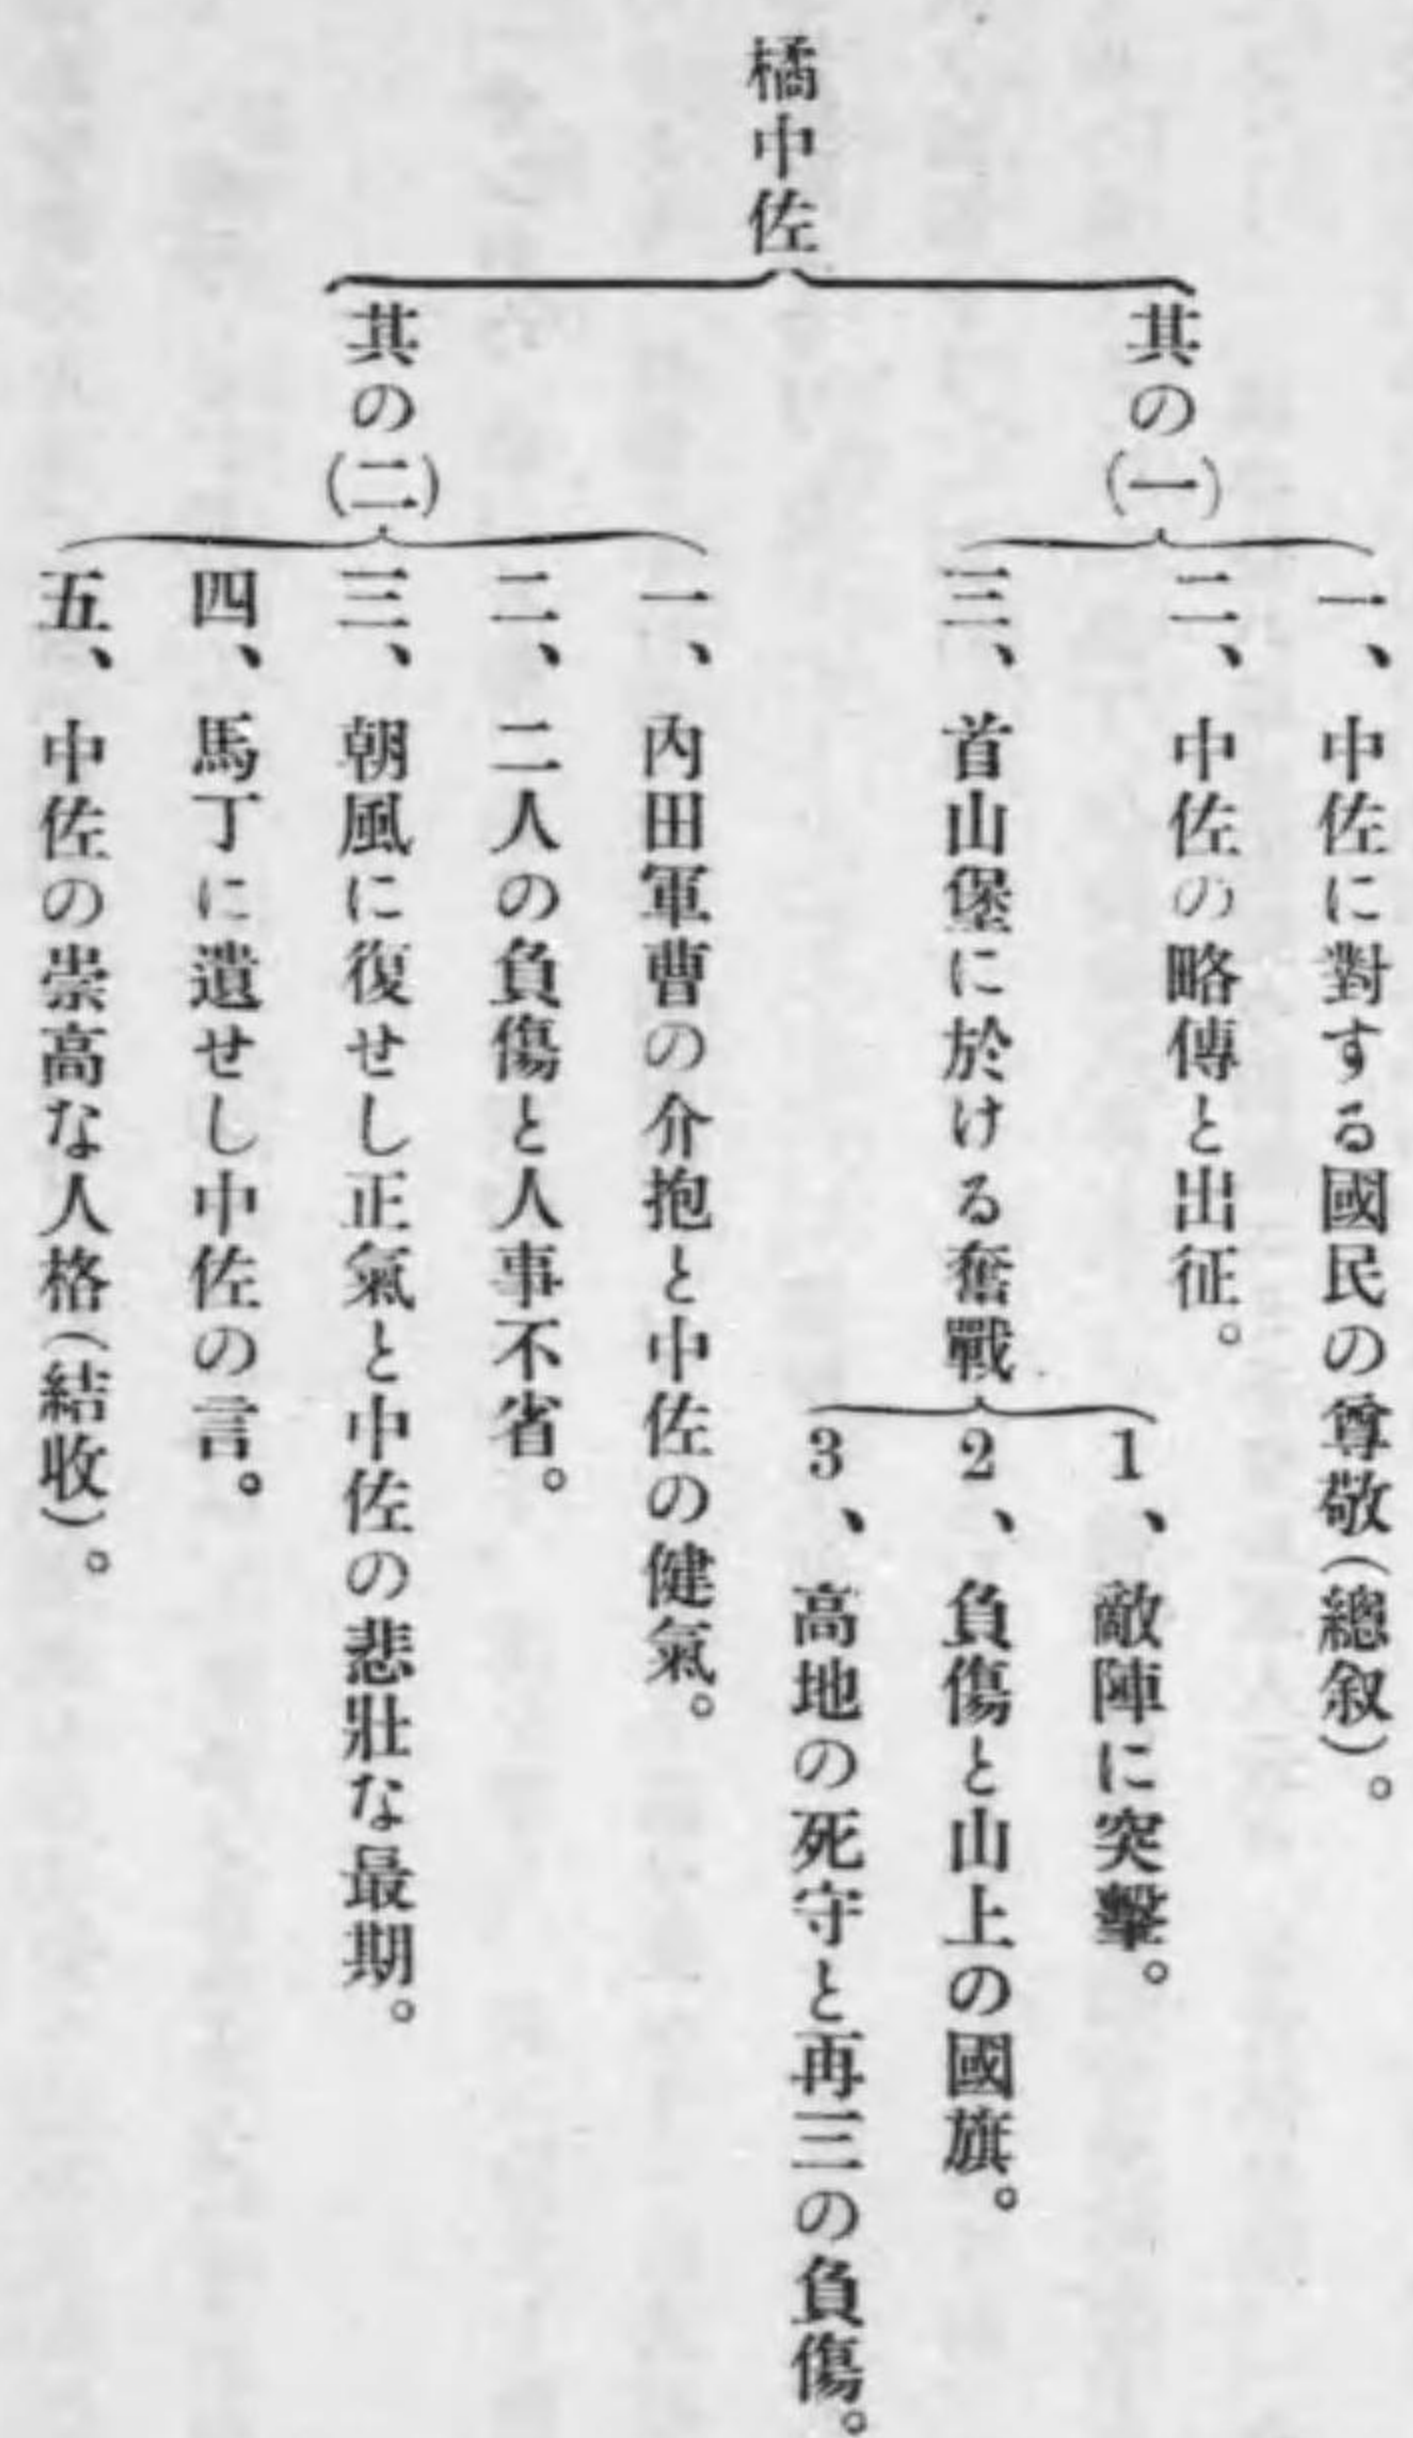 橘中佐
其の(一)
一、中佐に對する國民の尊敬(總叙)。
二、中佐の略傳と出征。
三、首山堡に於ける奮戰
1、敵陣に突擊。
2、負傷と山上の國旗。
3、高地の死守と再三の負傷。
其の(二)
一、內田軍曹の介抱と中佐の健氣。
二、二人の負傷と人事不省。
三、朝風に復せし正氣と中佐の悲壯な最期。
四、馬丁に遺せし中佐の言。
五、中佐の崇高な人格(結收)。